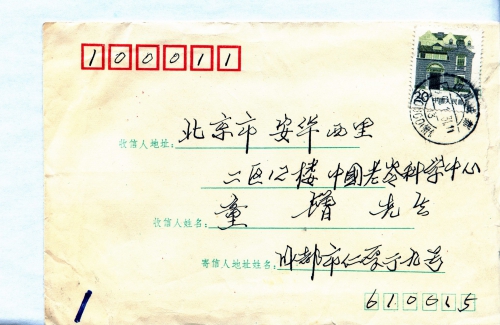 100011
收信人地址: 北京市安华西里
二区12楼中國老龄科学中心
收信人姓名: 童 先生
寄信人地址姓名: 成都市仁厚街九号
610015